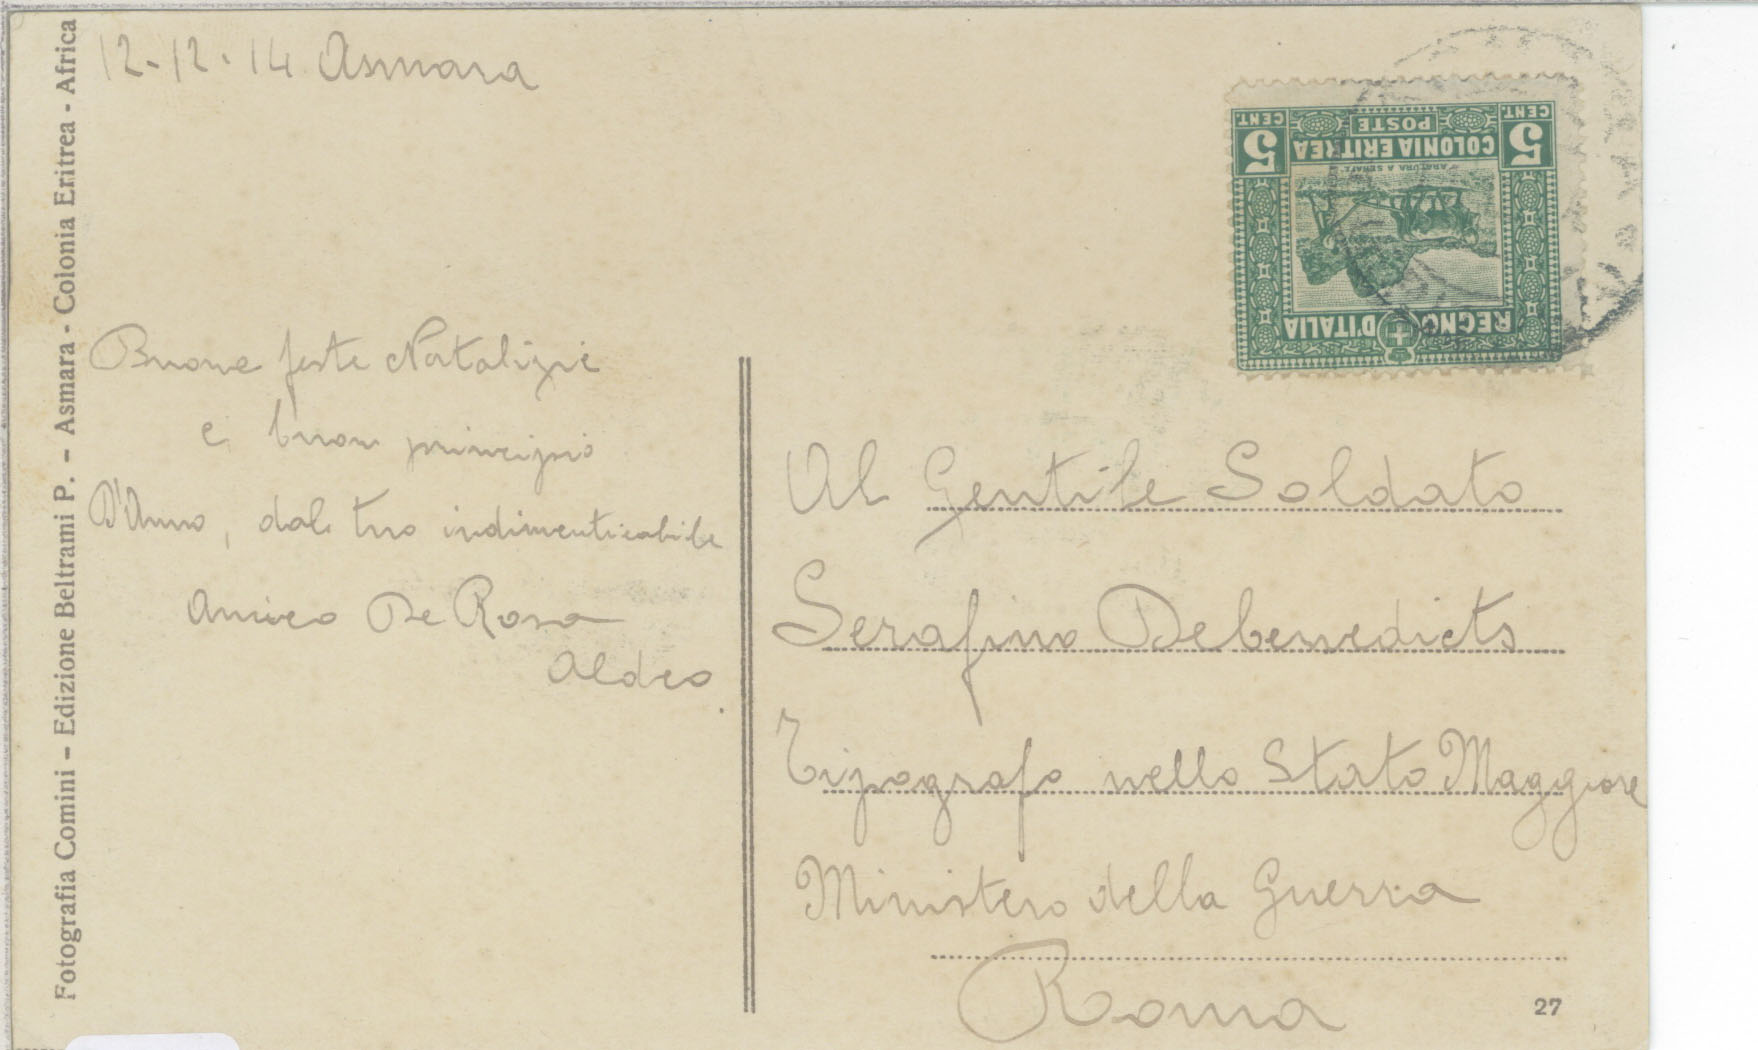 Fotografia Comini - Edizione Beltrami P. - Asmara - Colonia Eritrea - Africa
12-12-14 Asmara
Buone feste Natalizie
e buon principio
D'Anno, dal tuo indimenticabile
Amico De Rosa
Aldeo
REGNO D'ITALIA
ARATURA A SERAE
COLONIA ERITREA
5 POSTE 5
CENT. CENT.
Al Gentile Soldato
Serafino Debenedicts
Tipografo nello Stato Maggiore
Ministero della Guerra
Roma
27